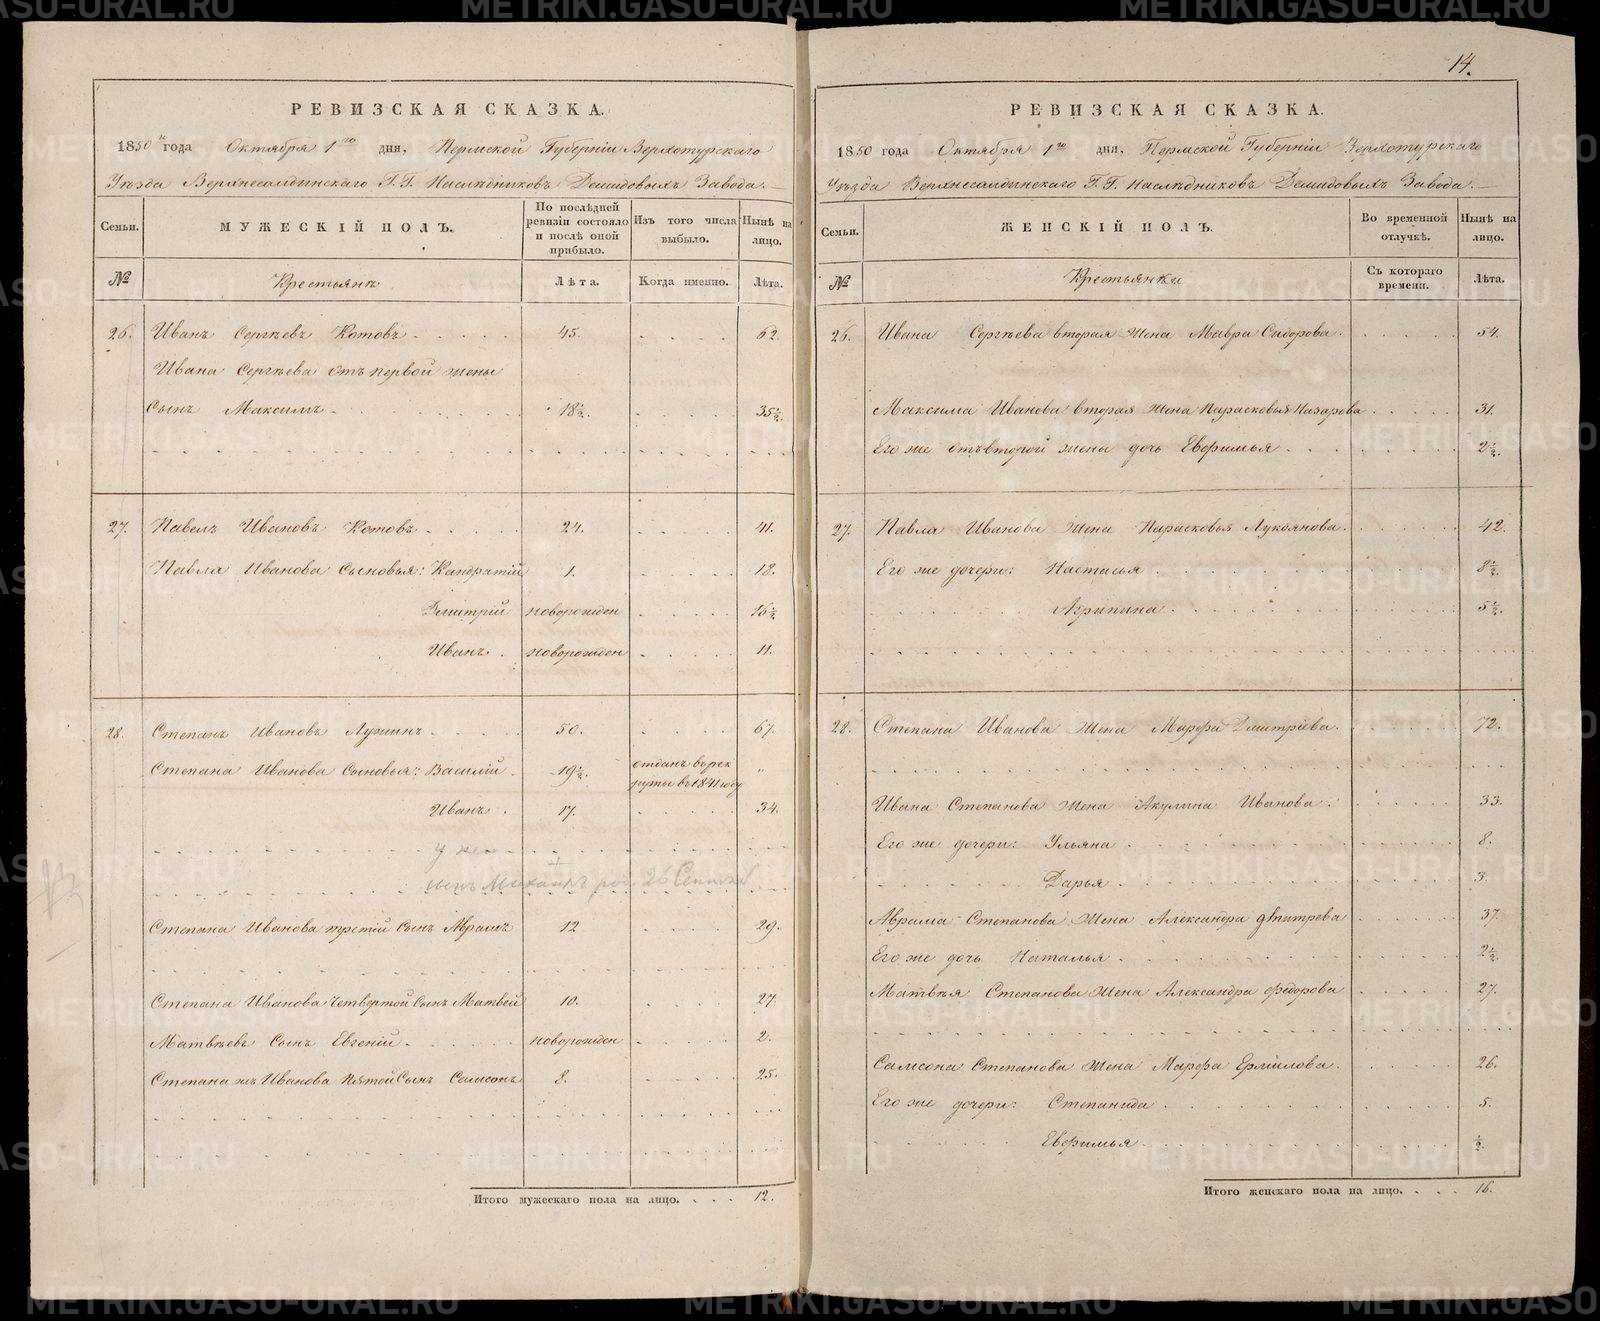 РЕВИЗСКАЯ СКАЗКА.
1850 года Октября 1го дня, Пермской Губерніи Верхотурскаго
Уѣзда Верхнесалдинскаго Г.Г. Наслѣдниковъ Демидовыхъ Завода.
Семьи. МУЖЕСКІЙ ПОЛЪ. По послѣдней ревизіи состояло и послѣ оной прибыло. Изъ того числа выбыло. Нынѣ на лицо.
№ Крестьянъ Лѣта. Когда именно. Лѣта.
26. Иванъ Сергѣевъ Котовъ 45. 62.
Ивана Сергѣева отъ первой жены
Сынъ Максимъ 18½. 35½.
27. Павелъ Ивановъ Котовъ 24. 41.
Павла Иванова Сыновья: Кандратій 1. 18.
Дмитрій новорожден 16½.
Иванъ новорожден 11.
28. Степанъ Ивановъ Лупинъ 50. 67.
Степана Иванова Сыновья: Василій 19½. отданъ въ рек
руты въ 1841 году "
Иванъ 17. 34.
у него
сынъ Михаилъ 26
Степана Иванова третій Сынъ Аврамъ 12 29.
Степана Иванова Четвертой Сынъ Матвей 10. 27.
Матвѣевъ Сынъ Евгеній новорожден 2.
Степана жъ Иванова Пятой Сынъ Самсонъ 8. 25.
Итого мужескаго пола на лицо. 12.
14.
РЕВИЗСКАЯ СКАЗКА.
1850 года Октября 1го дня, Пермской Губерніи Верхотурскаго
Уѣзда Верхнесалдинскаго Г.Г. Наслѣдниковъ Демидовыхъ Завода.
Семьи. ЖЕНСКІЙ ПОЛЪ. Во временной отлучкѣ. Нынѣ на лицо.
№ Крестьянки Съ котораго времени. Лѣта.
26. Ивана Сергѣева вторая жена Мавра Сидорова 54.
Максима Иванова вторая жена Парасковья Назарова 31.
Его же отъ второй жены дочь Евфимья 2½.
27. Павла Иванова жена Парасковья Лукоянова 42.
Его же дочери: Настасья 8½.
Агрипина 5½.
28. Степана Иванова жена Марфа Дмитріева 72.
Ивана Степанова жена Акулина Иванова 33.
Его же дочери: Ульяна 8.
Дарья 3.
Аврама Степанова жена Александра Дмитрева 37.
Его же дочь Наталья 2½.
Матвѣя Степанова жена Александра Федорова 27.
Самсона Степанова жена Марфа Ермилова 26.
Его же дочери: Степанида 5.
Евфимья ½.
Итого женскаго пола на лицо. 16.
METRIKI.GASO-URAL.RU